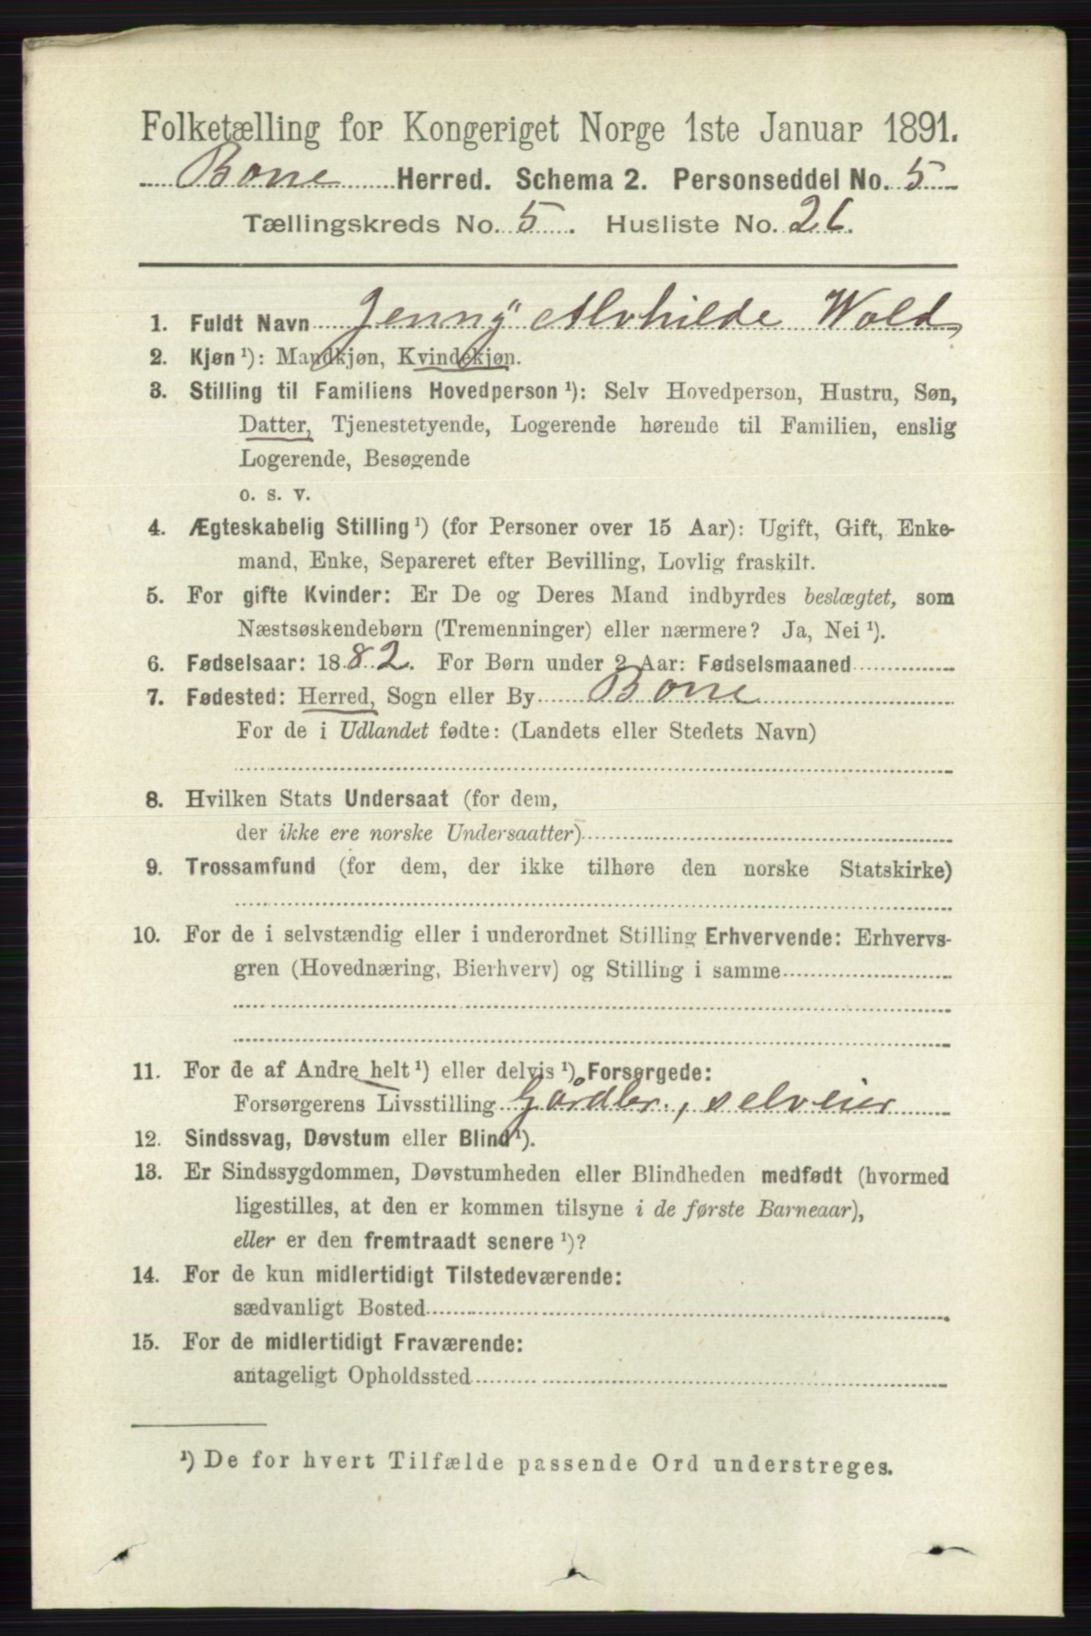 Folketælling for Kongeriget Norge 1ste Januar 1891.
Borre Herred. Schema 2. Personseddel No. 5
Tællingskreds No. 5. Husliste No. 26.
1. Fuldt Navn Jenny Alvhilde Wold
2. Kjøn ¹): Mandkjøn, Kvindekjøn.
3. Stilling til Familiens Hovedperson ¹): Selv Hovedperson, Hustru, Søn,
Datter, Tjenestetyende, Logerende hørende til Familien, enslig
Logerende, Besøgende
o. s. v.
4. Ægteskabelig Stilling ¹) (for Personer over 15 Aar): Ugift, Gift, Enke-
mand, Enke, Separeret efter Bevilling, Lovlig fraskilt.
5. For gifte Kvinder: Er De og Deres Mand indbyrdes beslægtet, som
Næstsøskendebørn (Tremenninger) eller nærmere? Ja, Nei ¹).
6. Fødselsaar: 1882. For Børn under 2 Aar: Fødselsmaaned
7. Fødested: Herred, Sogn eller By Borre
For de i Udlandet fødte: (Landets eller Stedets Navn)
8. Hvilken Stats Undersaat (for dem,
der ikke ere norske Undersaatter)
9. Trossamfund (for dem, der ikke tilhøre den norske Statskirke)
10. For de i selvstændig eller i underordnet Stilling Erhvervende: Erhvervs-
gren (Hovednæring, Bierhverv) og Stilling i samme
11. For de af Andre helt ¹) eller delvis ¹) Forsørgede:
Forsørgerens Livsstilling Gårdbr., selveier
12. Sindssvag, Døvstum eller Blind ¹).
13. Er Sindssygdommen, Døvstumheden eller Blindheden medfødt (hvormed
ligestilles, at den er kommen tilsyne i de første Barneaar),
eller er den fremtraadt senere ¹)?
14. For de kun midlertidigt Tilstedeværende:
sædvanligt Bosted
15. For de midlertidigt Fraværende:
antageligt Opholdssted
¹) De for hvert Tilfælde passende Ord understreges.